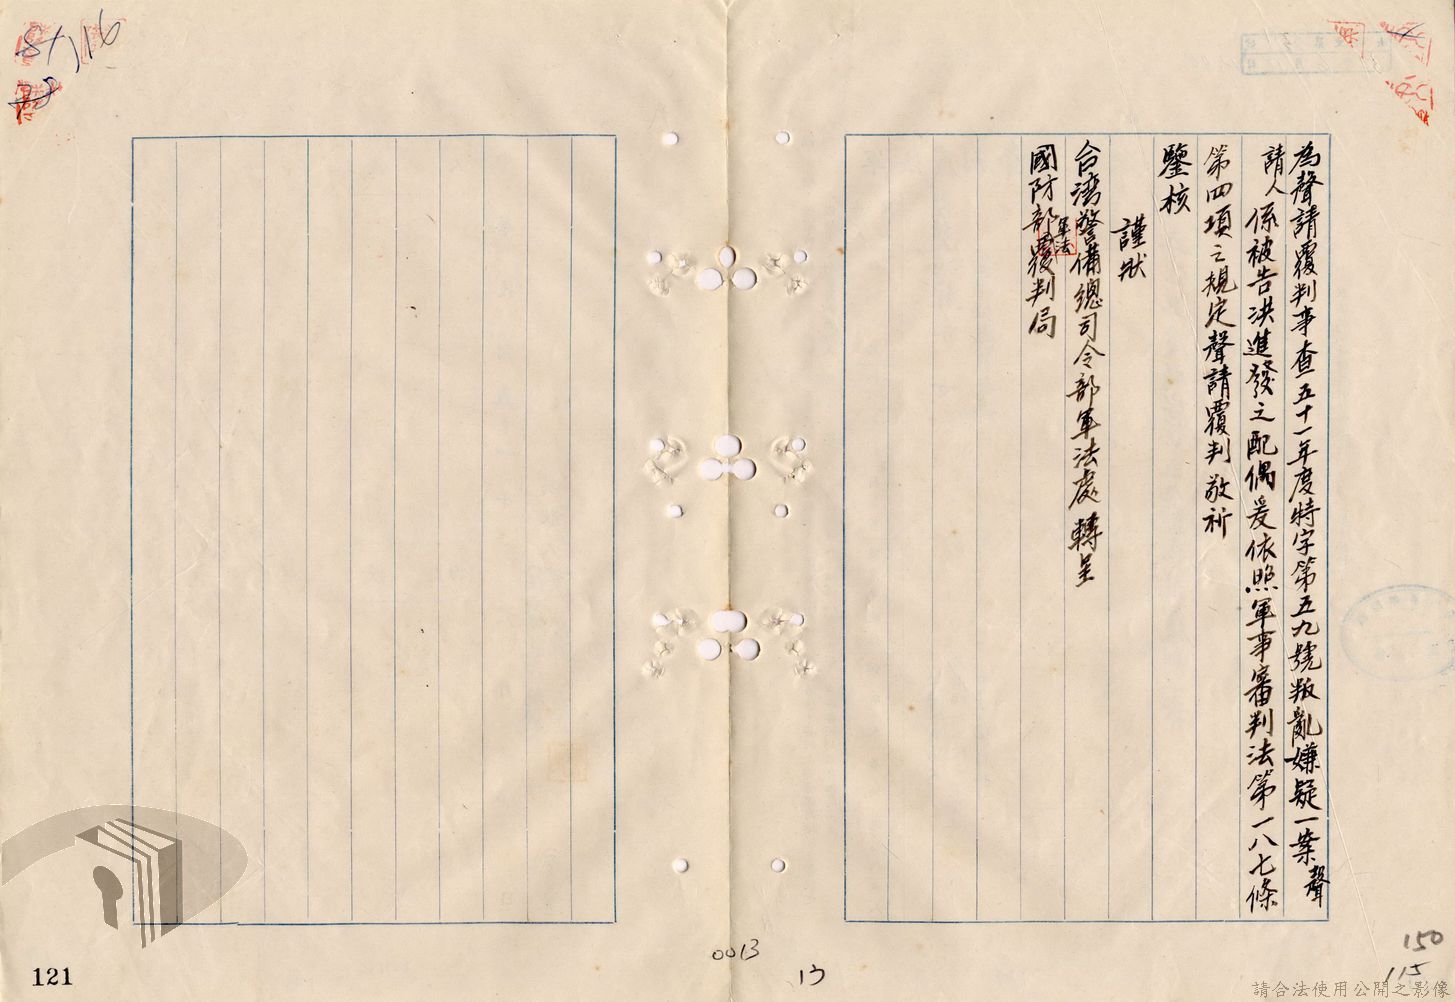 為聲請覆判事查五十一年度特字第五九號叛亂嫌疑一案聲
請人係被告洪進發之配偶爰依照軍事審判法第一八七條
第四項之規定聲請覆判敬祈
鑒核
謹狀
台湾警備總司令部軍法處 轉呈
國防部軍法覆判局
0013
13
121
150
115
請合法使用公開之影像